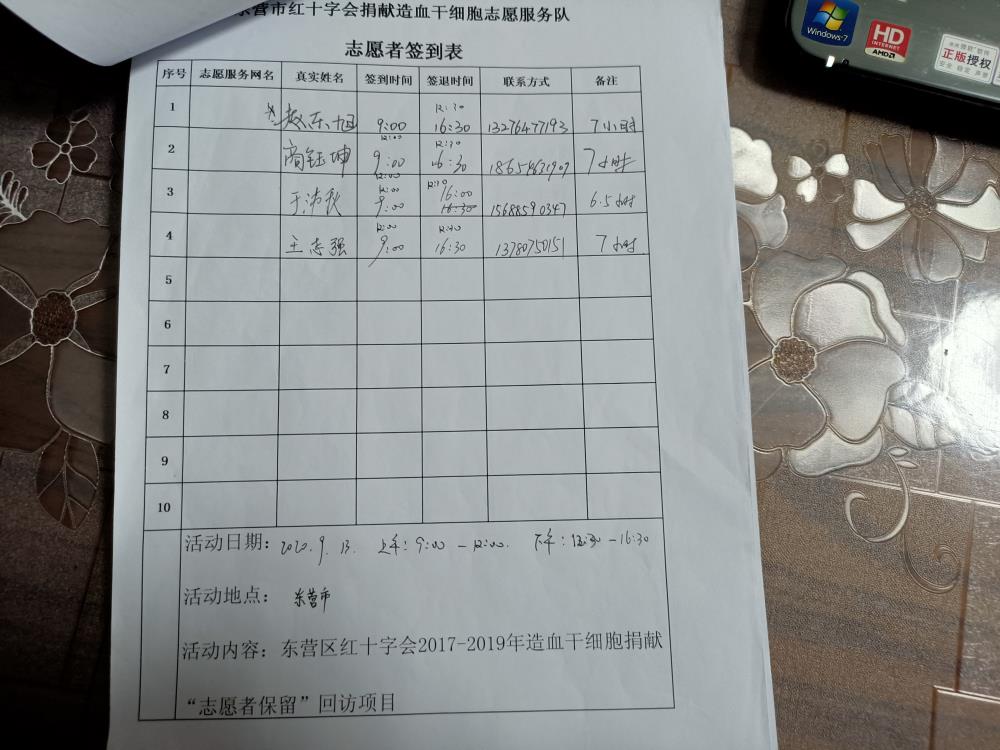 东营市红十字会捐献造血干细胞志愿服务队
志愿者签到表
序号 志愿服务网名 真实姓名 签到时间 签退时间 联系方式 备注
12:30
1 赵东旭 9:00 16:30 13276477193 7小时
12:00 12:30
2 商钰坤 9:00 16:30 18654631909 7小时
12:00 12:30 16:00
3 于沛秋 9:00 16:30 15688590347 6.5小时
12:00 12:30
4 王志强 9:00 16:30 13780750151 7小时
5
6
7
8
9
10
活动日期：2020.9.13. 上午：9:00-12:00. 下午：12:30-16:30
活动地点：东营市
活动内容：东营区红十字会2017-2019年造血干细胞捐献
“志愿者保留”回访项目
Windows 7
HD
INTERNET
AMD
正版授权